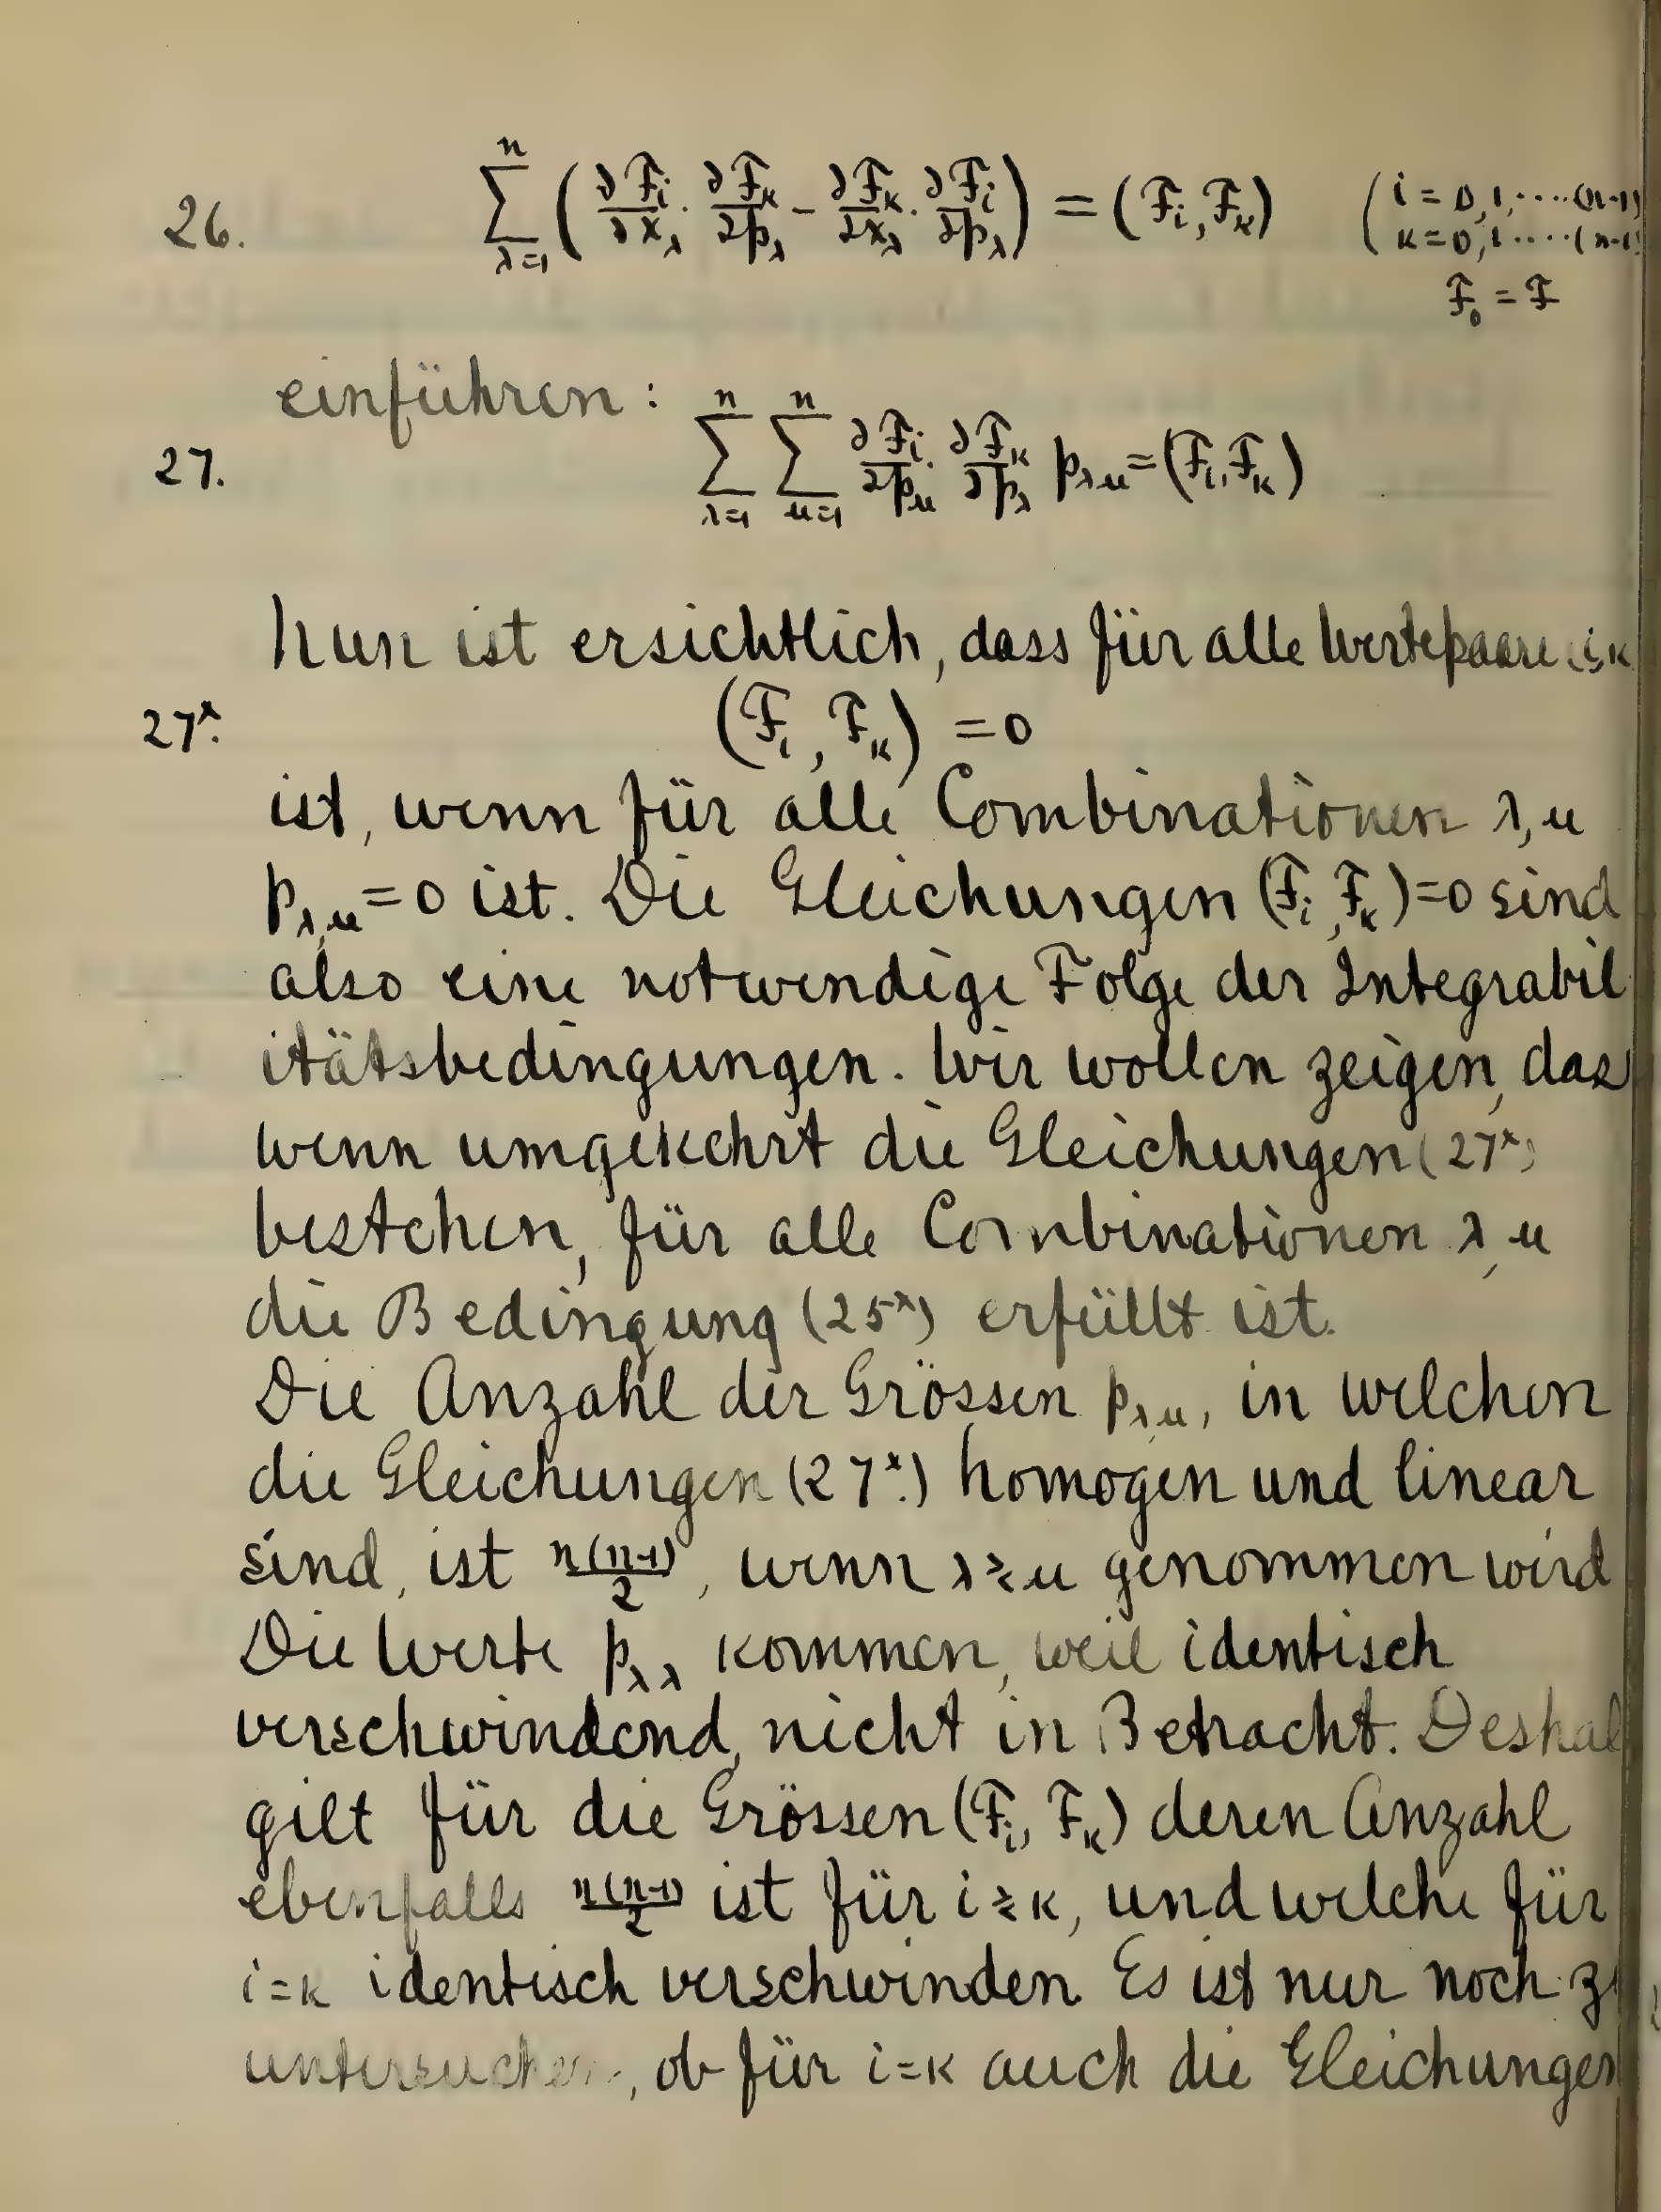 26. \sum_{λ=1}^{n} ( ∂F_i/∂x_λ · ∂F_κ/∂p_λ − ∂F_κ/∂x_λ · ∂F_i/∂p_λ ) = (F_i, F_κ) ( i = 0, 1, ....(n-1)
κ = 0, 1 ....(n-1)
F_0 = F
einführen:
27. \sum_{λ=1}^{n} \sum_{μ=1}^{n} ∂F_i/∂p_μ · ∂F_κ/∂p_λ p_{λμ} = (F_i, F_κ)
Nun ist ersichtlich, dass für alle Wertepaare i, κ
27^x. (F_i, F_κ) = 0
ist, wenn für alle Combinationen λ, μ
p_{λ,μ} = 0 ist. Die Gleichungen (F_i, F_κ) = 0 sind
also eine notwendige Folge der Integrabil
itätsbedingungen. Wir wollen zeigen, das
wenn umgekehrt die Gleichungen (27^x)
bestehen, für alle Combinationen λ, μ
die Bedingung (25^x) erfüllt ist.
Die Anzahl der Grössen p_{λ,μ}, in welchen
die Gleichungen (27^x.) homogen und linear
sind, ist n(n-1)/2, wenn λ ≷ μ genommen wird
Die Werte p_{λλ} kommen, weil identisch
verschwindend, nicht in Betracht. Deshal
gilt für die Grössen (F_i, F_κ) deren Anzahl
ebenfalls n(n-1)/2 ist für i ≷ κ, und welche für
i = κ identisch verschwinden. Es ist nur noch zu
untersuchen, ob für i = κ auch die Gleichungen